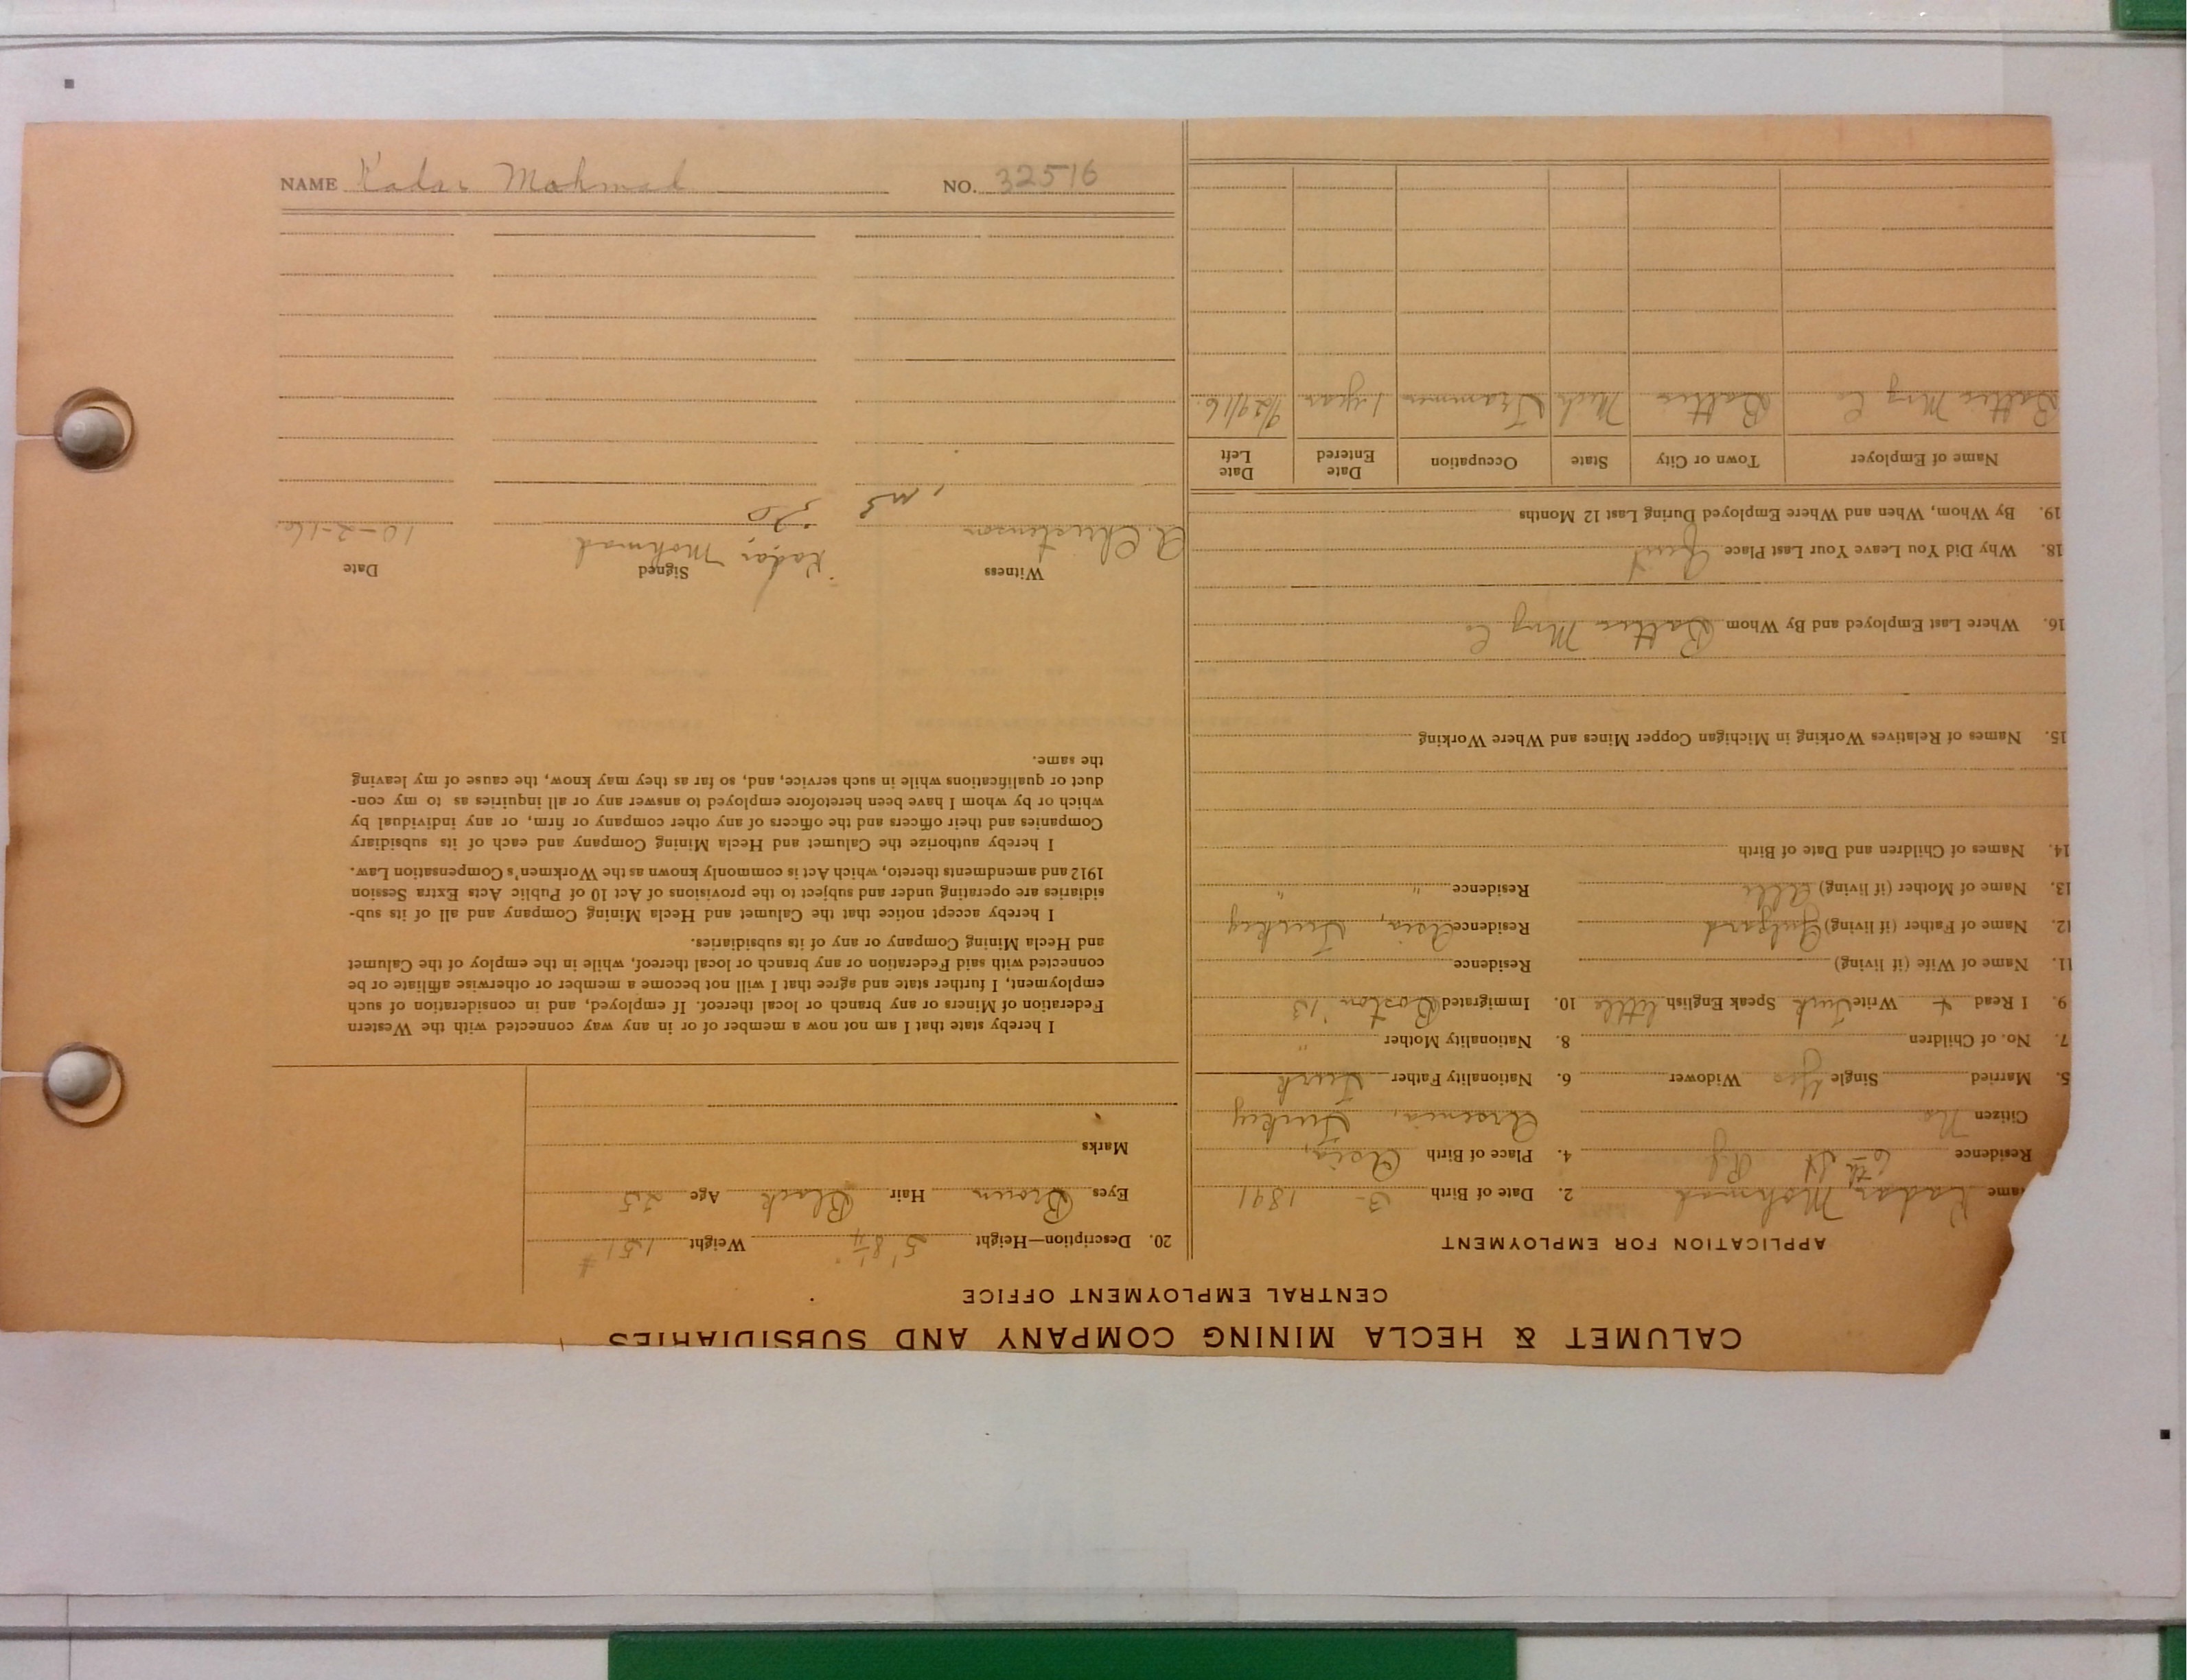 NAME Kadar Mohmad NO. 32516
CALUMET & HECLA MINING COMPANY AND SUBSIDIARIES
CENTRAL EMPLOYMENT OFFICE
APPLICATION FOR EMPLOYMENT
Name Kadar Mohmad 2. Date of Birth 3- 1891
Residence 6th St 4. Place of Birth Asia,
Citizen No Arsenia, Turkey
5. Married Single Yes Widower 6. Nationality Father Turk
7. No. of Children 8. Nationality Mother "
9. I Read & Write Turk Speak English little 10. Immigrated Boston '13
11. Name of Wife (if living) Residence
12. Name of Father (if living) Residence Asia, Turkey
13. Name of Mother (if living) Residence " "
14. Names of Children and Date of Birth
15. Names of Relatives Working in Michigan Copper Mines and Where Working
16. Where Last Employed and By Whom Baltic Mng Co
18. Why Did You Leave Your Last Place Quit
19. By Whom, When and Where Employed During Last 12 Months
Name of Employer Town or City State Occupation Date Entered Date Left
Baltic Mng Co Baltic Mich Trammer 1 year 9/29/16
20. Description—Height 5' 8 1/4" Weight 151 #
Eyes Brown Hair Black Age 25
Marks
I hereby state that I am not now a member of or in any way connected with the Western
Federation of Miners or any branch or local thereof. If employed, and in consideration of such
employment, I further state and agree that I will not become a member or otherwise affiliate or be
connected with said Federation or any branch or local thereof, while in the employ of the Calumet
and Hecla Mining Company or any of its subsidiaries.
I hereby accept notice that the Calumet and Hecla Mining Company and all of its sub-
sidiaries are operating under and subject to the provisions of Act 10 of Public Acts Extra Session
1912 and amendments thereto, which Act is commonly known as the Workmen's Compensation Law.
I hereby authorize the Calumet and Hecla Mining Company and each of its subsidiary
Companies and their officers and the officers of any other company or firm, or any individual by
which or by whom I have been heretofore employed to answer any or all inquiries as to my con-
duct or qualifications while in such service, and, so far as they may know, the cause of my leaving
the same.
Witness Signed Date
A. Christenson Kadar Mohmad 10-2-16